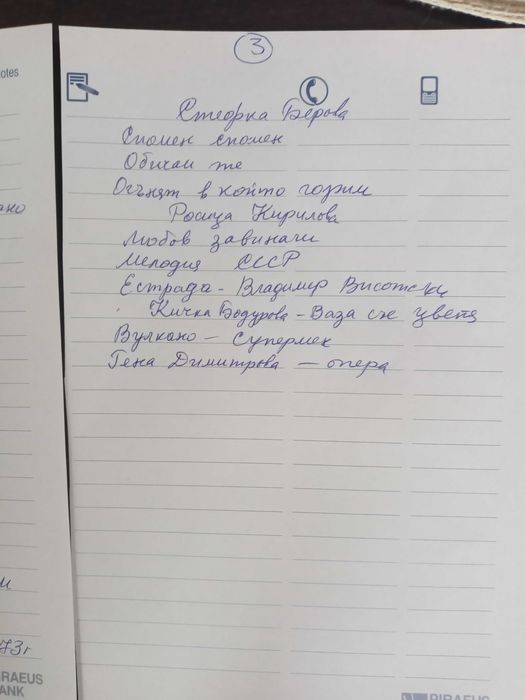 3
otes
Стефка Берова
Спомен спомен
Обичам те
Огънят в който горим
ано
Росица Кирилова
Любов завинаги
Мелодия СССР
Естрада - Владимир Висотски
Кичка Бодурова - Ваза със цветя
Вулкано - Супермен
Гена Димитрова - опера
и
73г
IRAEUS
ANK
PIRAEUS